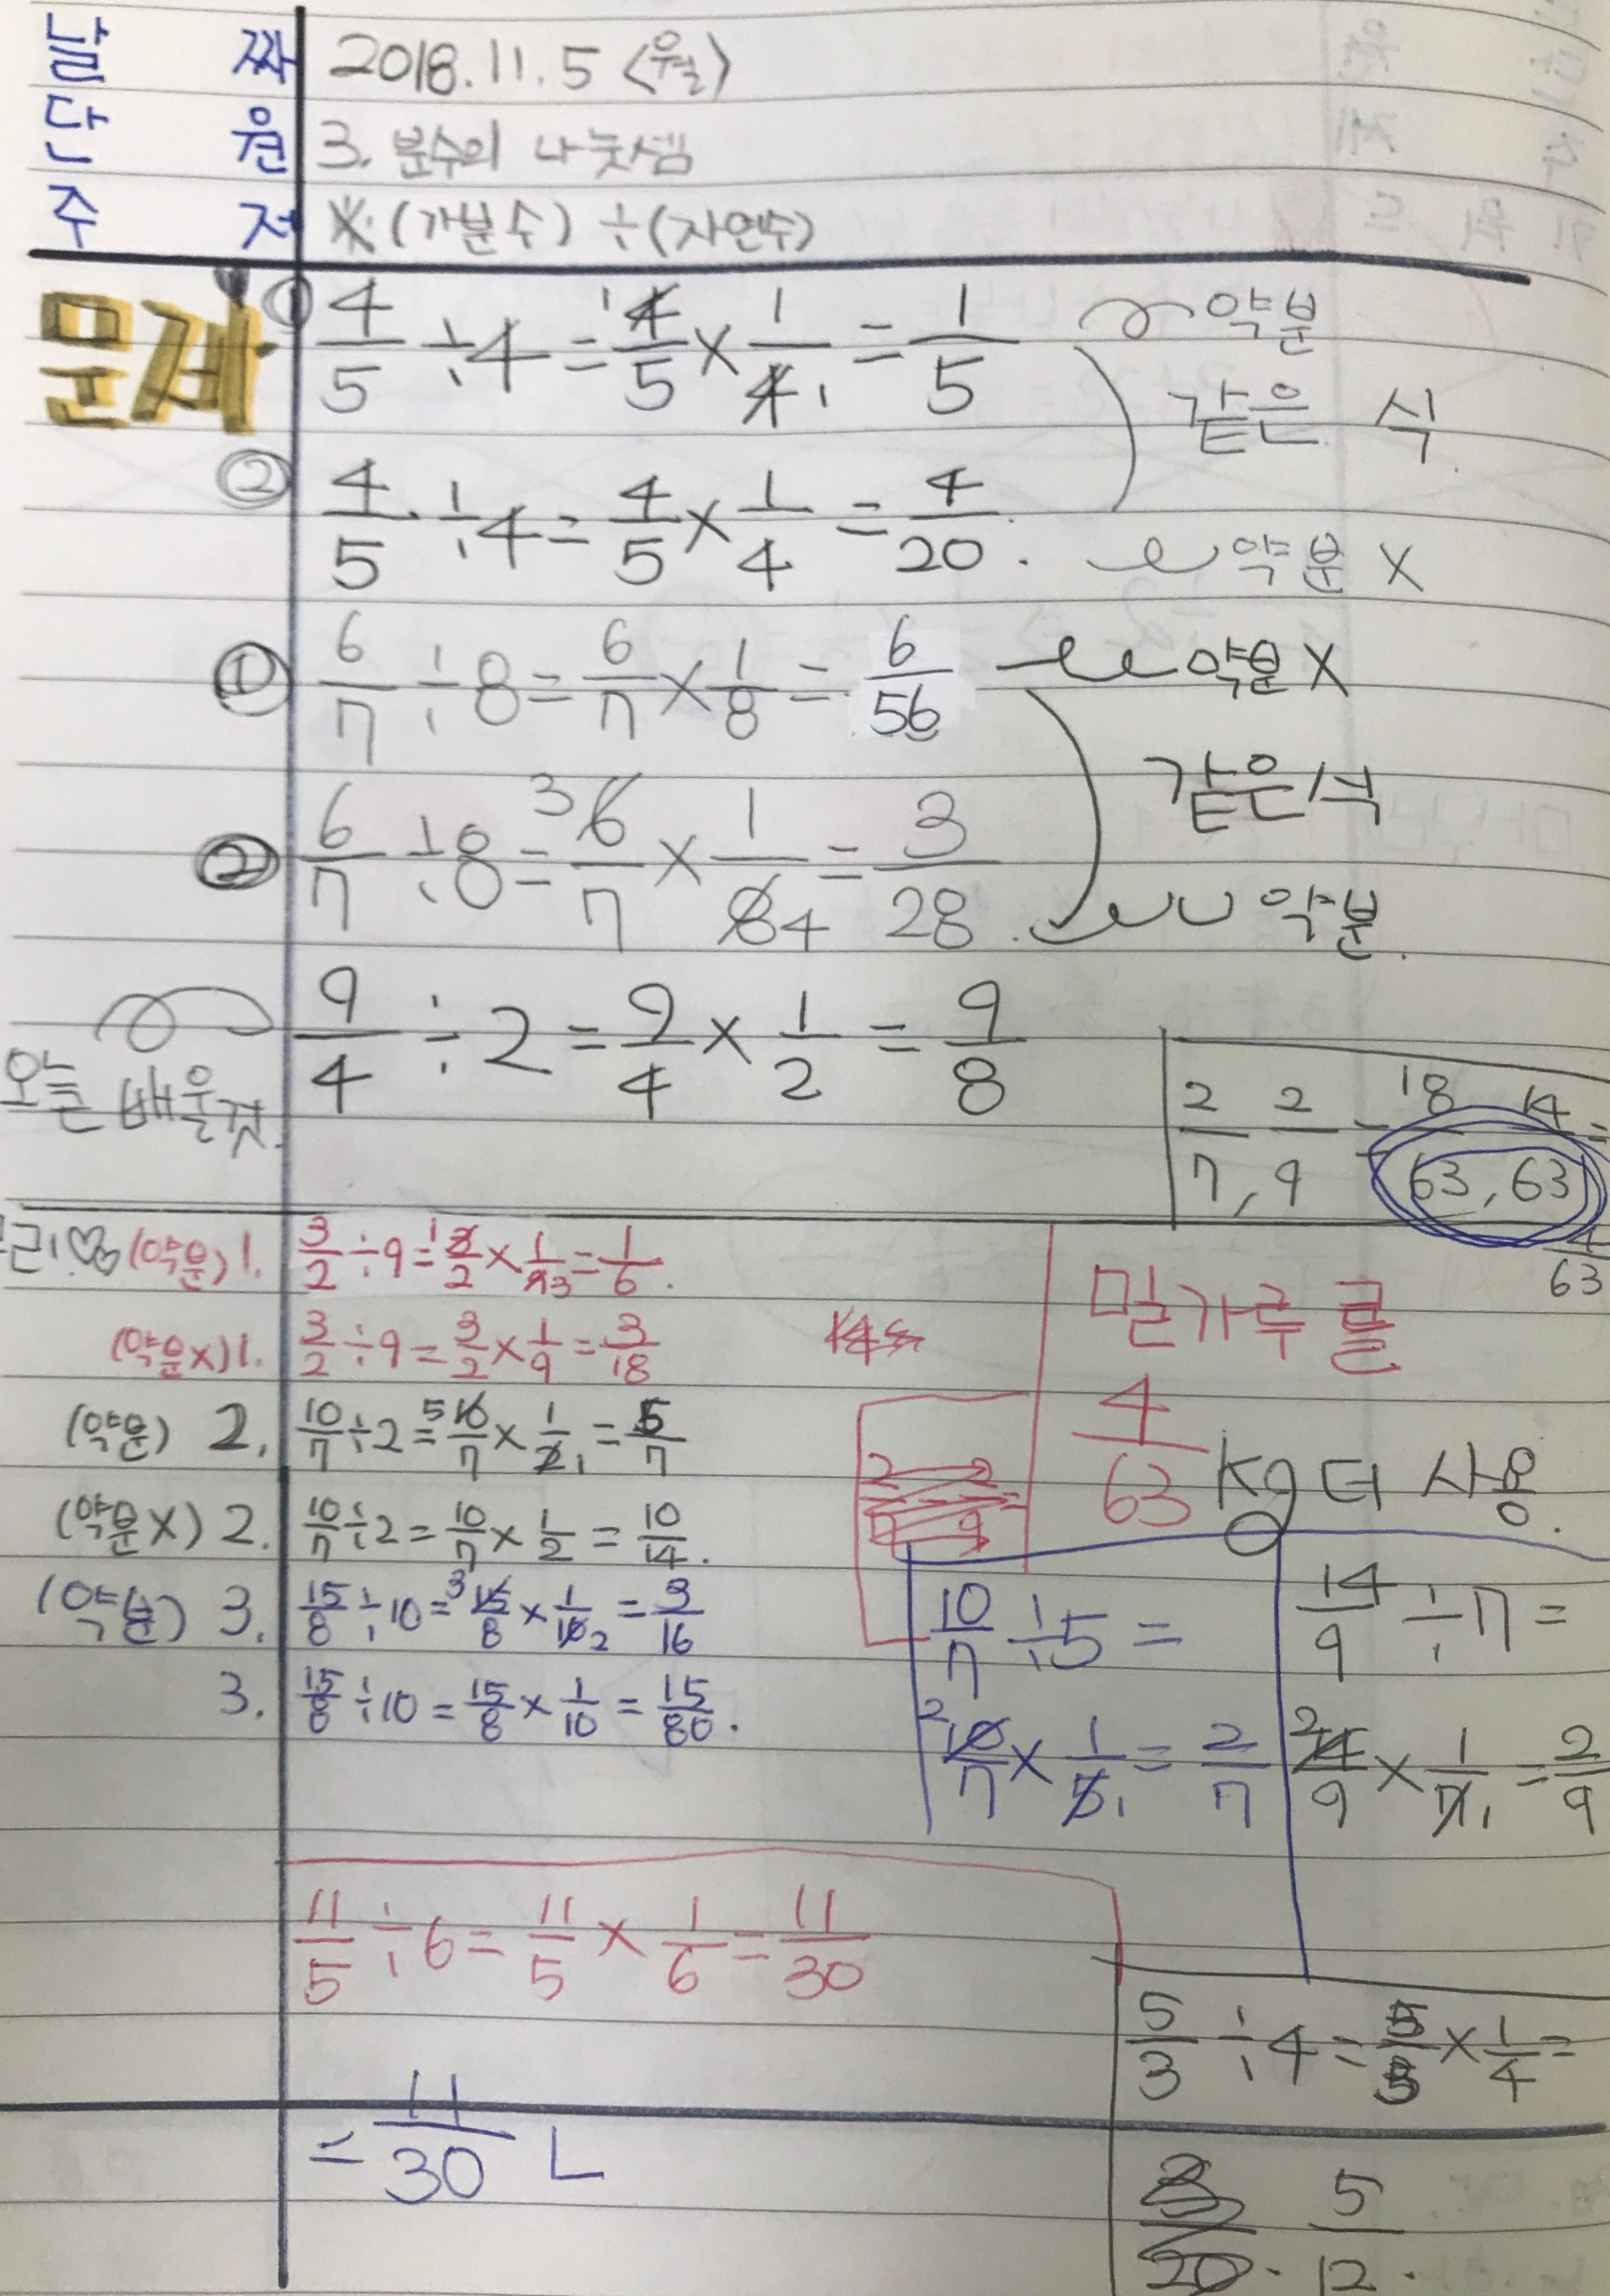 날 짜 2018.11.5 <월>
단 원 3. 분수의 나눗셈
주 제 ※ (가분수) ÷ (자연수)
문제
① 4/5 ÷ 4 = 4/5 × 1/4 = 1/5 약분
같은 식
② 4/5 ÷ 4 = 4/5 × 1/4 = 4/20. 약분 X
① 6/7 ÷ 8 = 6/7 × 1/8 = 6/56 약분 X
같은 식
② 6/7 ÷ 8 = 6/7 × 1/8 = 3/28. 약분.
오늘 배울것. 9/4 ÷ 2 = 9/4 × 1/2 = 9/8
2/7, 2/9 = 18/63, 14/63 =
4/63
(약분) 1. 3/2 ÷ 9 = 3/2 × 1/9 = 1/6.
(약분X) 1. 3/2 ÷ 9 = 3/2 × 1/9 = 3/18
(약분) 2. 10/7 ÷ 2 = 10/7 × 1/2 = 5/7
(약분X) 2. 10/7 ÷ 2 = 10/7 × 1/2 = 10/14.
(약분) 3. 15/8 ÷ 10 = 15/8 × 1/10 = 3/16
3. 15/8 ÷ 10 = 15/8 × 1/10 = 15/80.
밀가루를
4/63 kg 더 사용.
10/7 ÷ 5 =
10/7 × 1/5 = 2/7
14/9 ÷ 7 =
14/9 × 1/7 = 2/9
11/5 ÷ 6 = 11/5 × 1/6 = 11/30
= 11/30 L
5/3 ÷ 4 = 5/3 × 1/4 =
5/12.